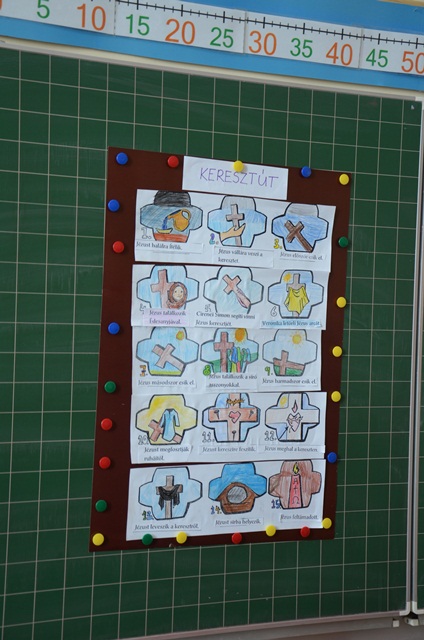 5 10 15 20 25 30 35 40 45 50
KERESZTÚT
1. Jézust halálra ítélik.
2. Jézus vállára veszi a
keresztet.
3. Jézus először esik el.
4. Jézus találkozik
Édesanyjával.
5. Cirenei Simon segíti vinni
Jézus keresztjét.
6. Veronika letörli Jézus arcát.
7. Jézus másodszor esik el.
8. Jézus találkozik a síró
asszonyokkal.
9. Jézus harmadszor esik el.
10. Jézust megfosztják
ruháitól.
11. Jézust keresztre feszítik.
12. Jézus meghal a kereszten.
13. Jézust leveszik a keresztről.
14. Jézust sírba helyezik.
15. Jézus feltámadott.